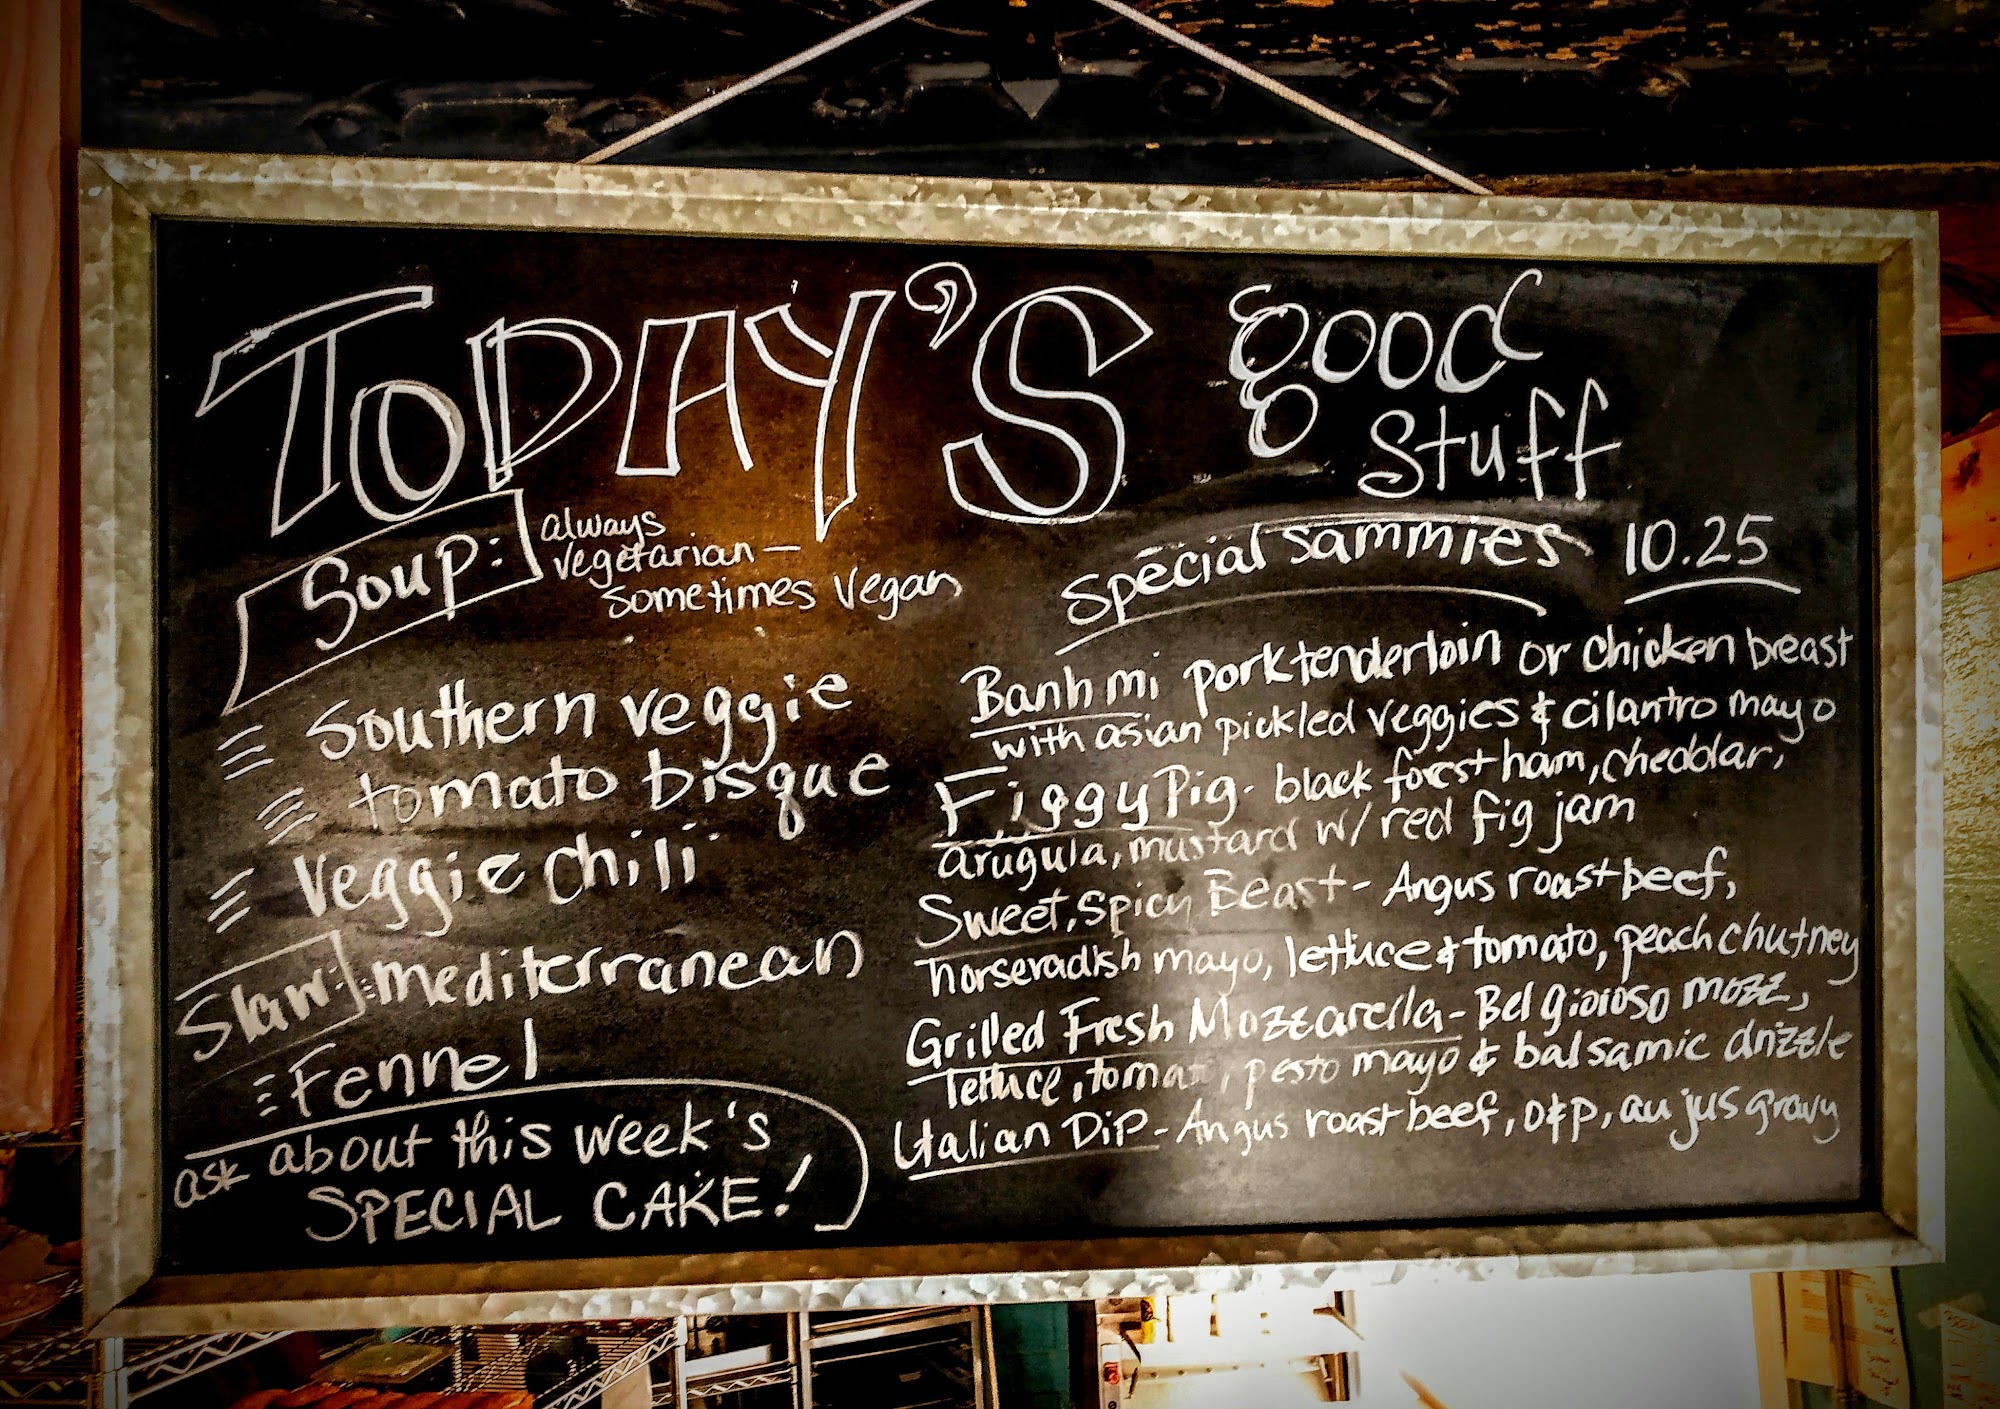 TODAY'S good
stuff
Soup: always
vegetarian —
sometimes vegan
Southern veggie
tomato bisque
veggie chili
Slaw: mediterranean
Fennel
ask about this week's
SPECIAL CAKE!
Special sammies 10.25
Banh mi pork tenderloin or chicken breast
with asian pickled veggies & cilantro mayo
Figgy Pig - black forest ham, cheddar,
arugula, mustard w/ red fig jam
Sweet, Spicy Beast - Angus roast beef,
horseradish mayo, lettuce & tomato, peach chutney
Grilled Fresh Mozzarella - Bel gioioso mozz,
lettuce, tomato, pesto mayo & balsamic drizzle
Italian DiP - Angus roast beef, O&P, au jus gravy